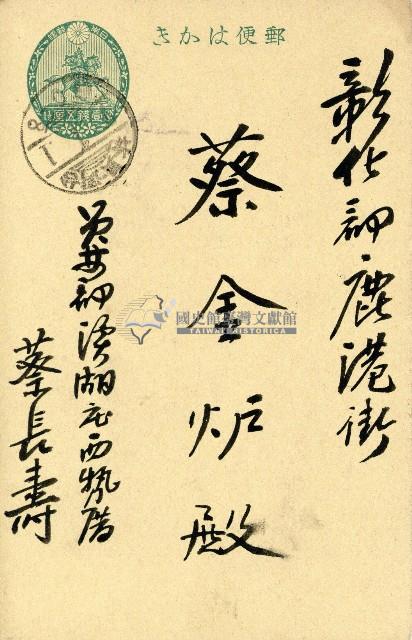 郵便はかき
彰化郡鹿港街
蔡金炉殿
員林郡溪湖庄西勢厝
蔡長壽
國史館臺灣文獻館
TAIWAN HISTORICA